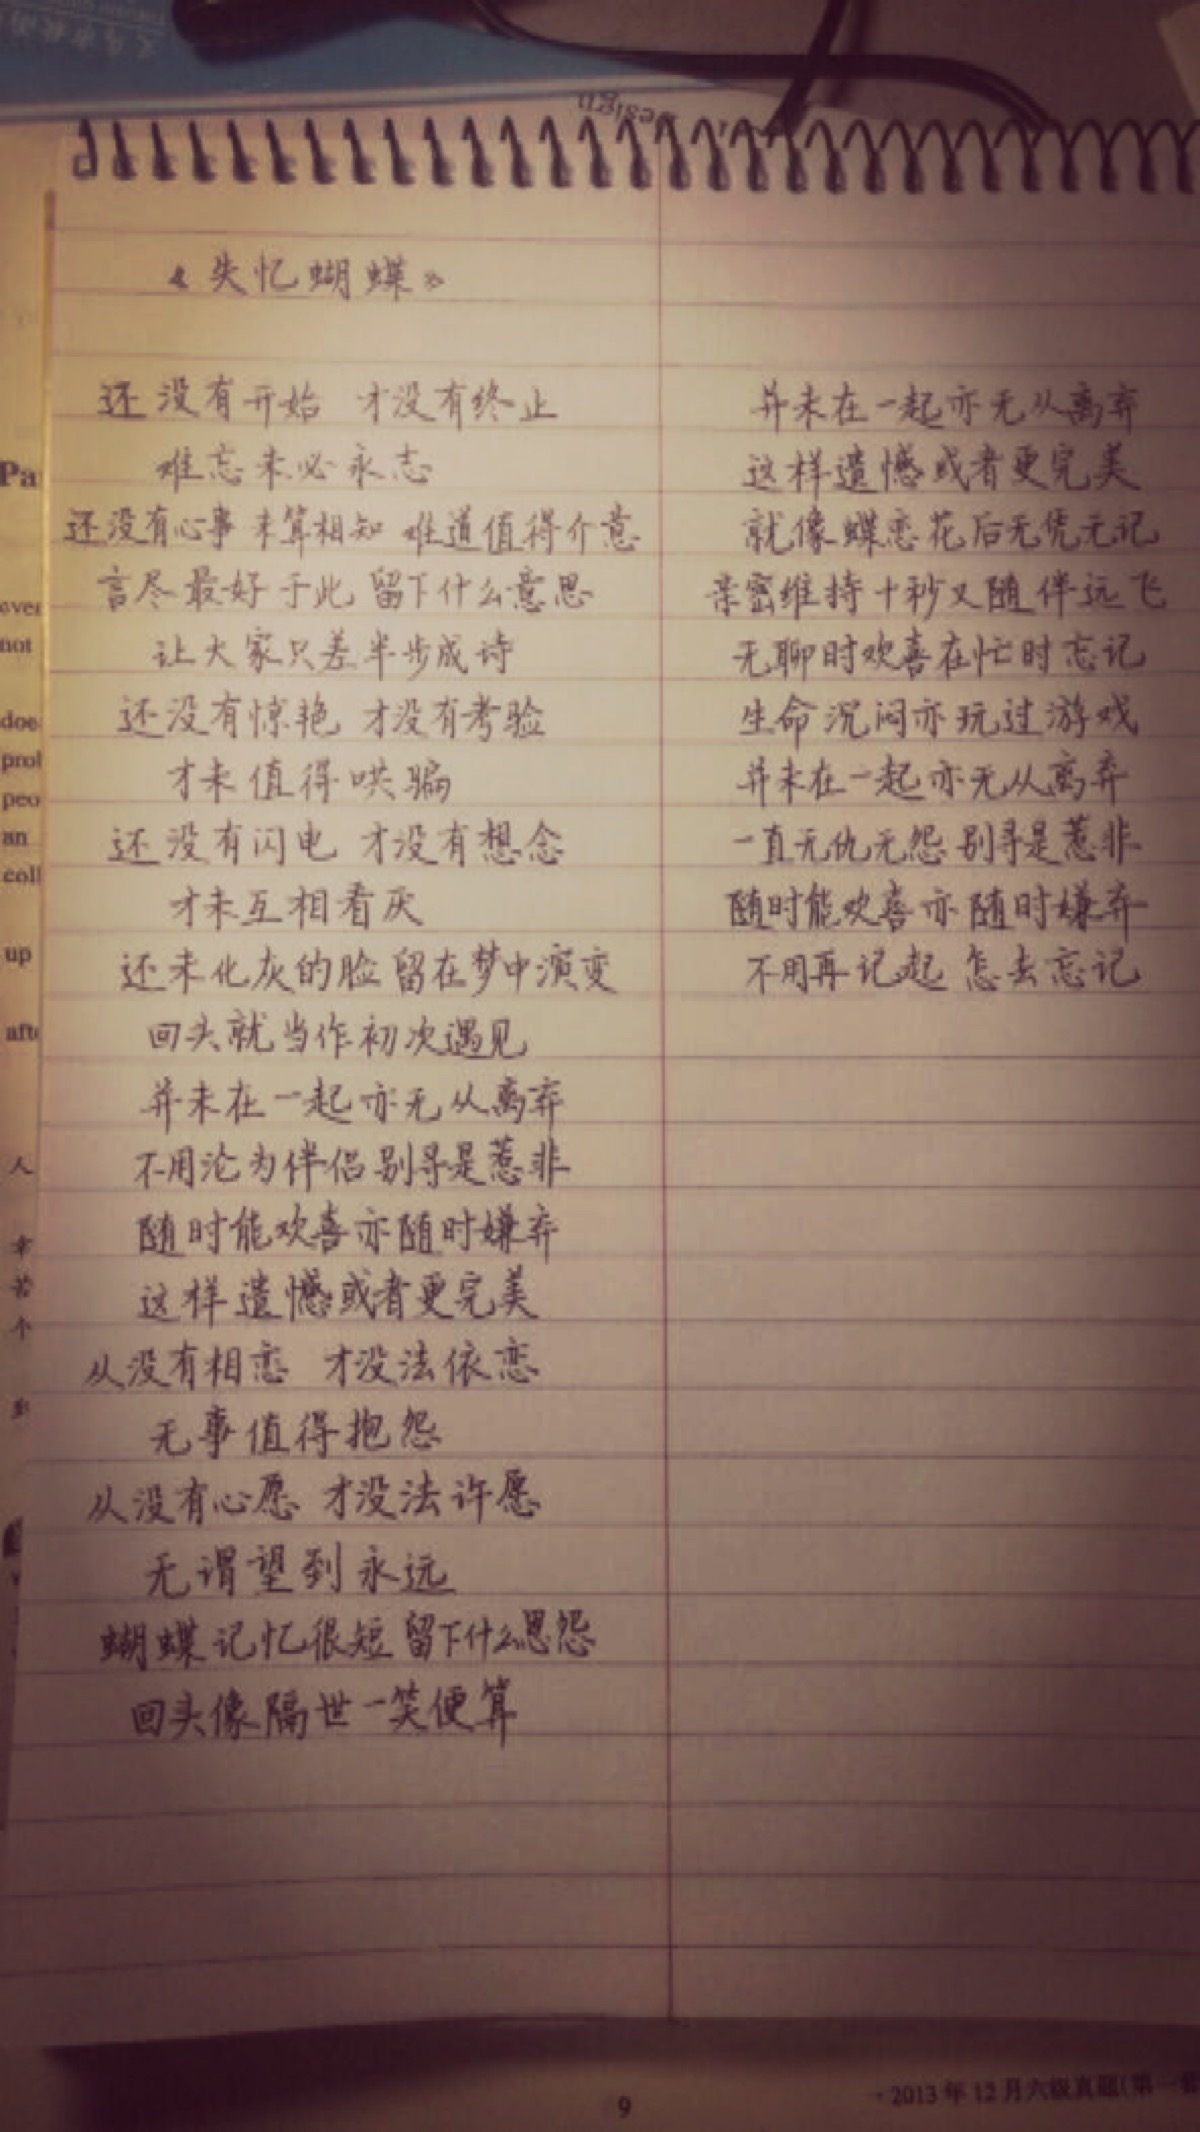 《失忆蝴蝶》
还没有开始 才没有终止
难忘未必永志
还没有心事 未算相知 难道值得介意
言尽最好于此 留下什么意思
让大家只差半步成诗
还没有惊艳 才没有考验
才未值得哄骗
还没有闪电 才没有想念
才未互相看厌
还未化灰的脸 留在梦中演变
回头就当作初次遇见
并未在一起亦无从离弃
不用沦为伴侣别寻是惹非
随时能欢喜亦随时嫌弃
这样遗憾或者更完美
从没有相恋 才没法依恋
无事值得抱怨
从没有心愿 才没法许愿
无谓望到永远
蝴蝶记忆很短 留下什么恩怨
回头像隔世一笑便算
并未在一起亦无从离弃
这样遗憾或者更完美
就像蝶恋花后无凭无记
亲密维持十秒又随伴远飞
无聊时欢喜在忙时忘记
生命沉闷亦玩过游戏
并未在一起亦无从离弃
一直无仇无怨 别寻是惹非
随时能欢喜亦随时嫌弃
不用再记起 怎去忘记
Par
over
not
doe
prol
peo
an
coll
up
afte
人
幸
苦
个
9
·2013年12月六级真题(第一